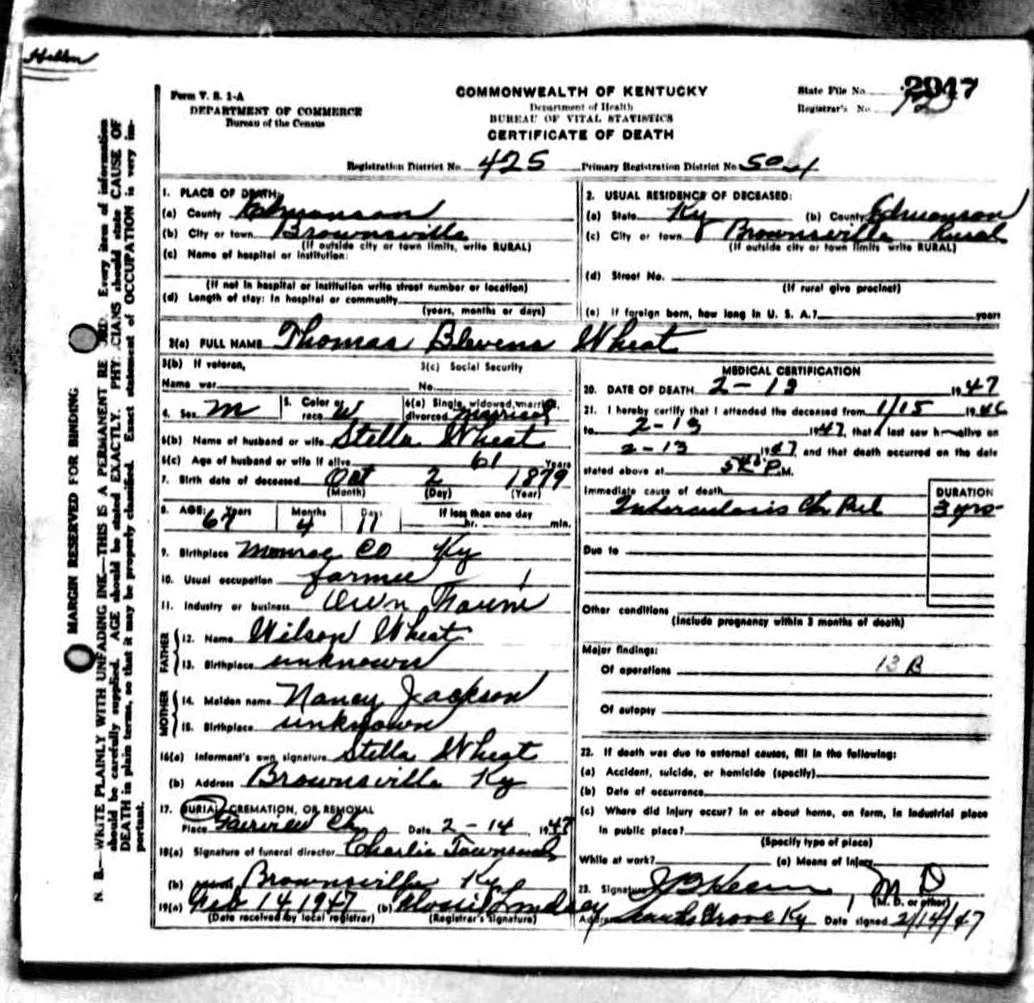 Form V. S. 1-A
DEPARTMENT OF COMMERCE
Bureau of the Census
COMMONWEALTH OF KENTUCKY
Department of Health
BUREAU OF VITAL STATISTICS
CERTIFICATE OF DEATH
State File No. 2947
Registrar's No.
Registration District No. 425 Primary Registration District No.
N. B.—WRITE PLAINLY WITH UNFADING INK—THIS IS A PERMANENT RE ORD. Every item of information
should be carefully supplied. AGE should be stated EXACTLY. PHY CIANS should state CAUSE OF
DEATH in plain terms, so that it may be properly classified. Exact statement of OCCUPATION is very im-
portant.
MARGIN RESERVED FOR BINDING
1. PLACE OF DEATH:
(a) County Edmonson
(b) City or town Brownsville
(If outside city or town limits, write RURAL)
(c) Name of hospital or institution:
(If not in hospital or institution write street number or location)
(d) Length of stay: In hospital or community
(years, months or days)
2. USUAL RESIDENCE OF DECEASED:
(a) State Ky (b) County Edmonson
(c) City or town Brownsville Rural
(If outside city or town limits write RURAL)
(d) Street No.
(If rural give precinct)
(e) If foreign born, how long in U. S. A.? years
3(a) FULL NAME Thomas Blevens Wheat
3(b) If veteran, 3(c) Social Security
Name war No.
4. Sex M 5. Color or race W 6(a) Single, widowed, married, divorced married
6(b) Name of husband or wife Stella Wheat
6(c) Age of husband or wife if alive 61 Years
7. Birth date of deceased Oct 2 1879
(Month) (Day) (Year)
8. AGE: Years Months Days If less than one day
67 4 11 hr. min.
9. Birthplace Monroe Co Ky
10. Usual occupation farmer
11. Industry or business Own Farm
FATHER
12. Name Wilson Wheat
13. Birthplace unknown
MOTHER
14. Maiden name Nancy Jackson
15. Birthplace unknown
16(a) Informant's own signature Stella Wheat
(b) Address Brownsville Ky
17. BURIAL, CREMATION, OR REMOVAL
Place Fairview Ch Date 2-14, 1947
18(a) Signature of funeral director Charlie Townsend
(b) Brownsville Ky
19(a) Feb 14 1947 (b) Lindsey
(Date received by local registrar) (Registrar's signature)
MEDICAL CERTIFICATION
20. DATE OF DEATH 2-13 1947
21. I hereby certify that I attended the deceased from 1/15 1946
to 2-13 1947, that I last saw h alive on
2-13 1947 and that death occurred on the date
stated above at P.M.
Immediate cause of death DURATION
Tuberculosis Ch Pul 3 yrs
Due to
Other conditions
(Include pregnancy within 3 months of death)
Major findings:
Of operations 13 B
Of autopsy
22. If death was due to external causes, fill in the following:
(a) Accident, suicide, or homicide (specify)
(b) Date of occurrence
(c) Where did injury occur? In or about home, on farm, in industrial place
in public place?
(Specify type of place)
While at work? (e) Means of Injury
23. Signature M D
(M. D. or other)
Address Grove Ky Date signed 2/14/47